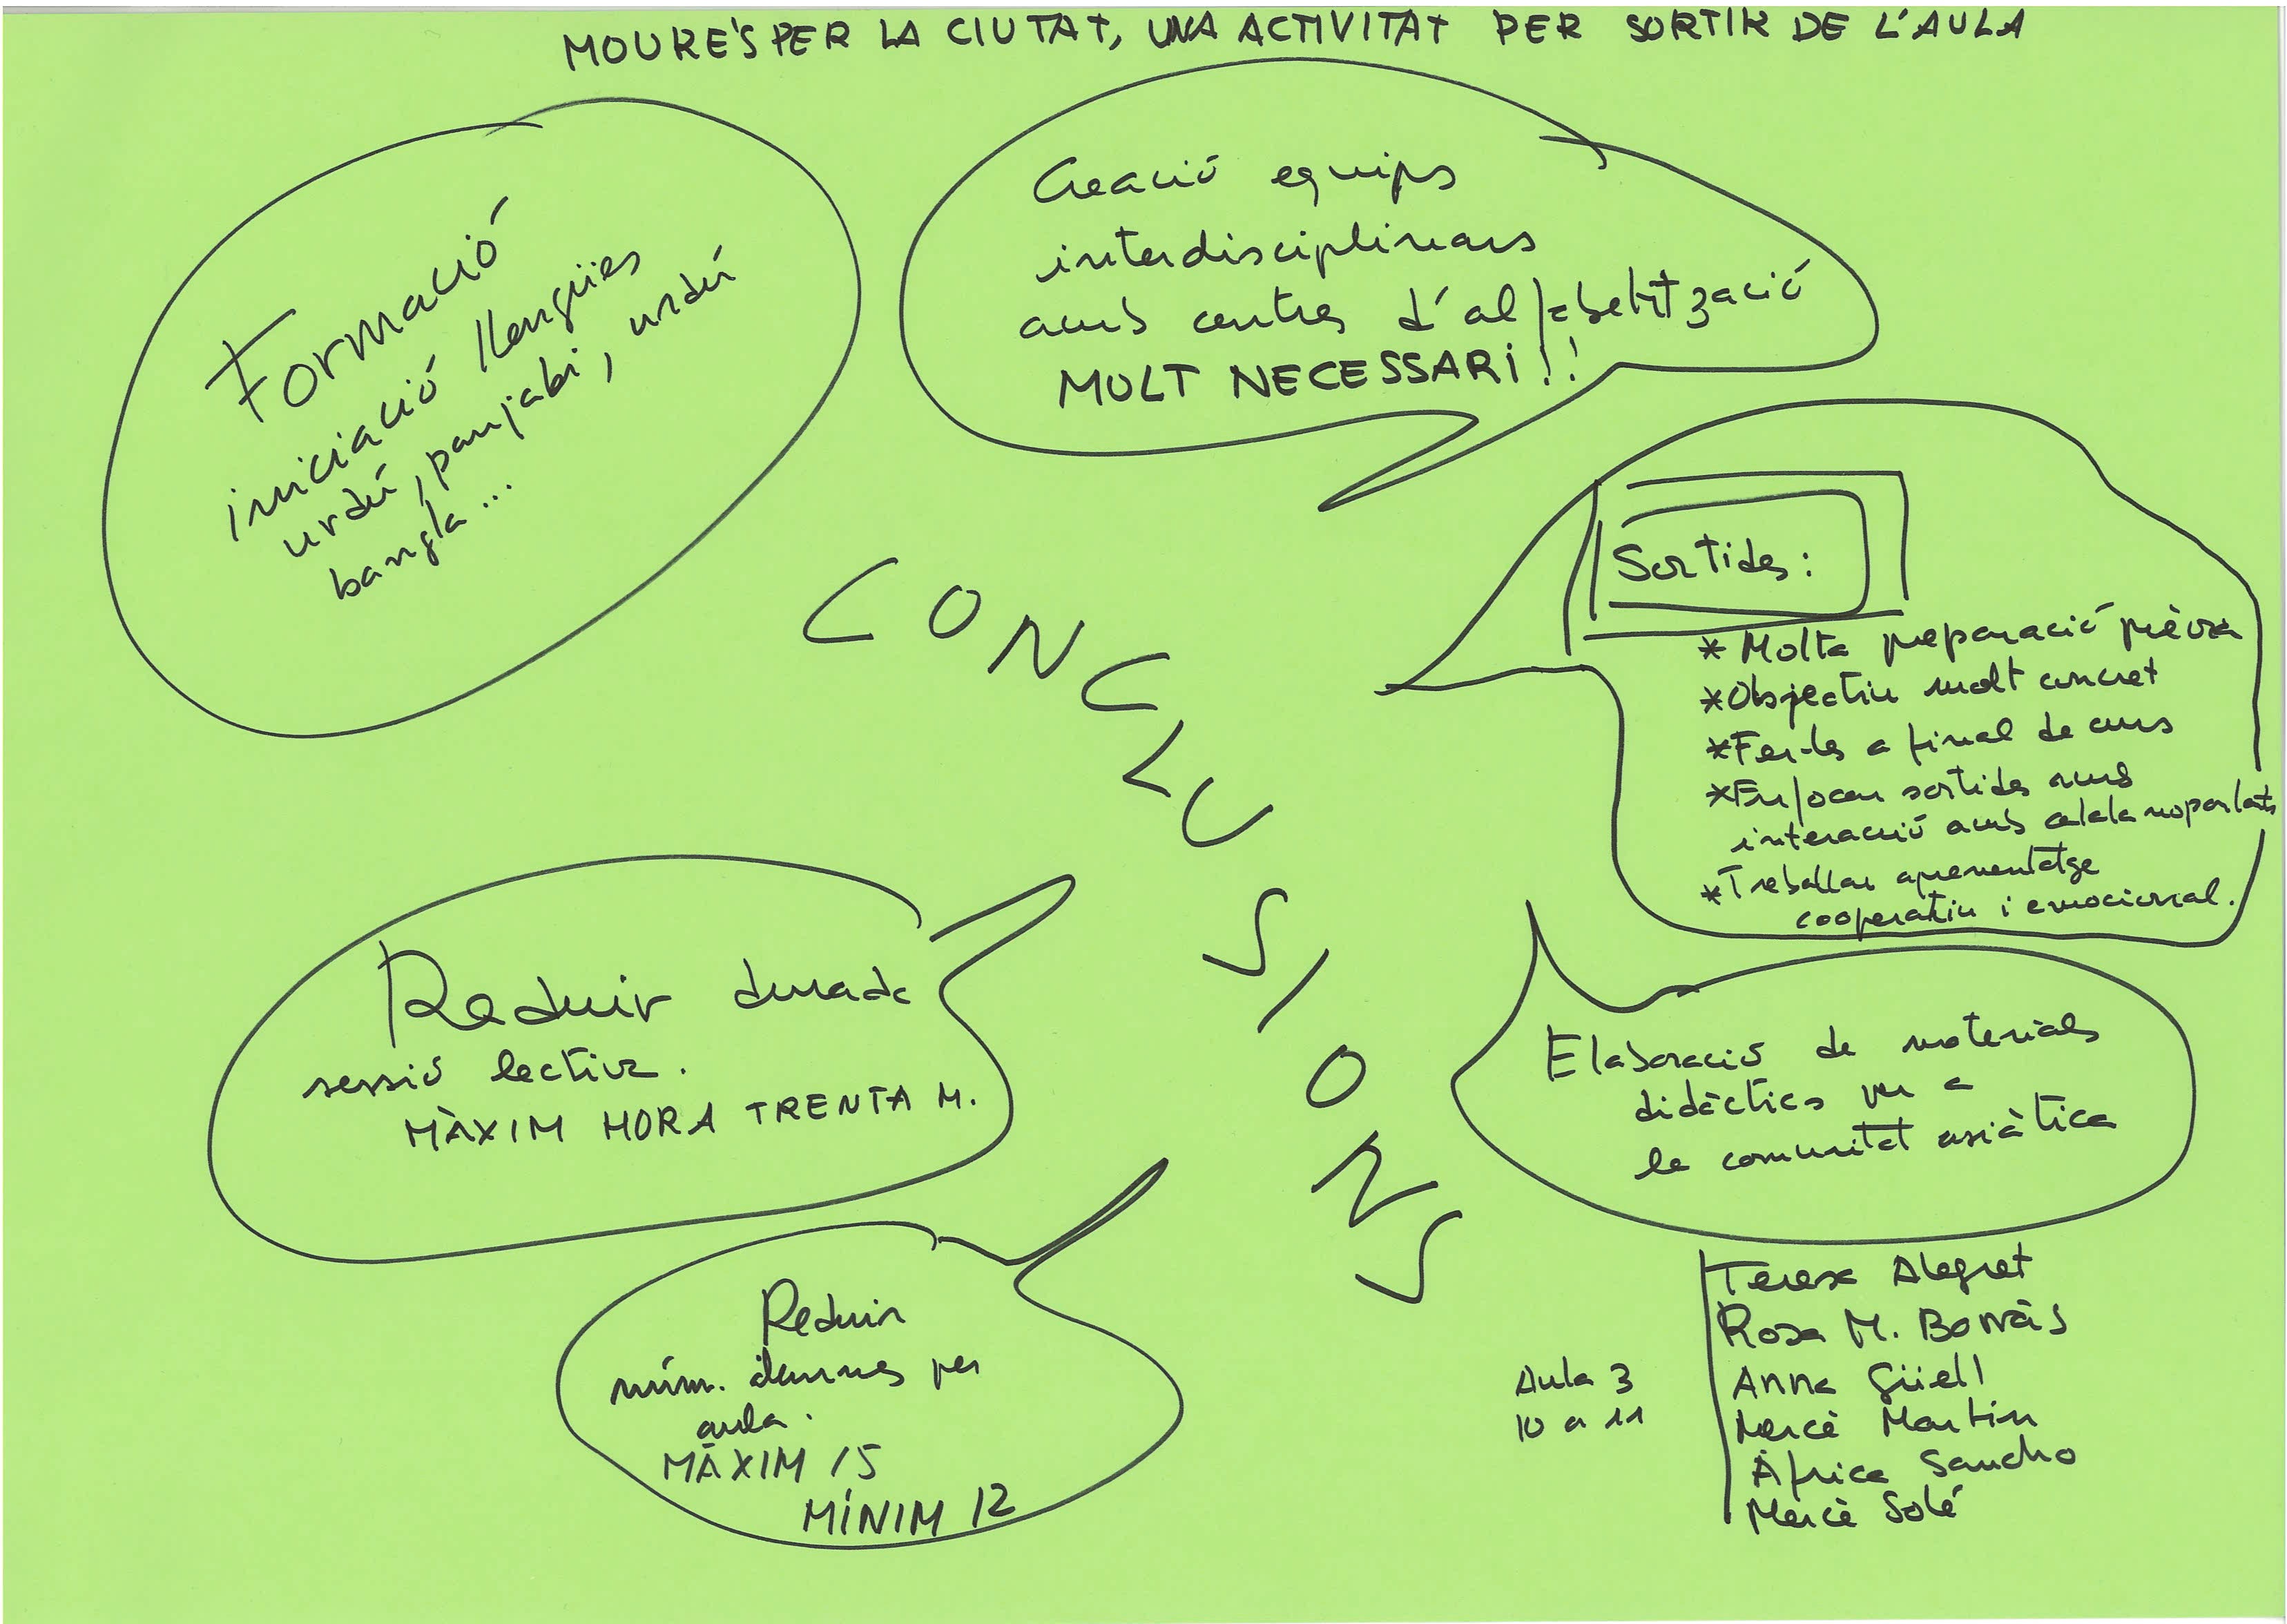 MOURE'S PER LA CIUTAT, UNA ACTIVITAT PER SORTIR DE L'AULA
Formació
iniciació llengües
urdú, panjabi, urdú
bangla...
Creació equips
interdisciplinars
amb centres d'alfabetització
MOLT NECESSARI!!
CONCLUSIONS
Sortides:
* Molta preparació prèvia
* Objectiu molt concret
* Fer-les a final de curs
* Enfocar sortides amb
interacció amb catala noparlants
* Treballar aprenentatge
cooperatiu i emocional.
Reduir durada
sessió lectiva.
MÀXIM HORA TRENTA M.
Elaboració de materials
didàctics per a
la comunitat asiàtica
Reduir
núm. per
aula.
MÀXIM 15
MÍNIM 12
Aula 3
10 a 11
Teresa Alegret
Rosa M. Borràs
Anna Güell
Mercè Martin
Àfrica Sancho
Mercè Solé